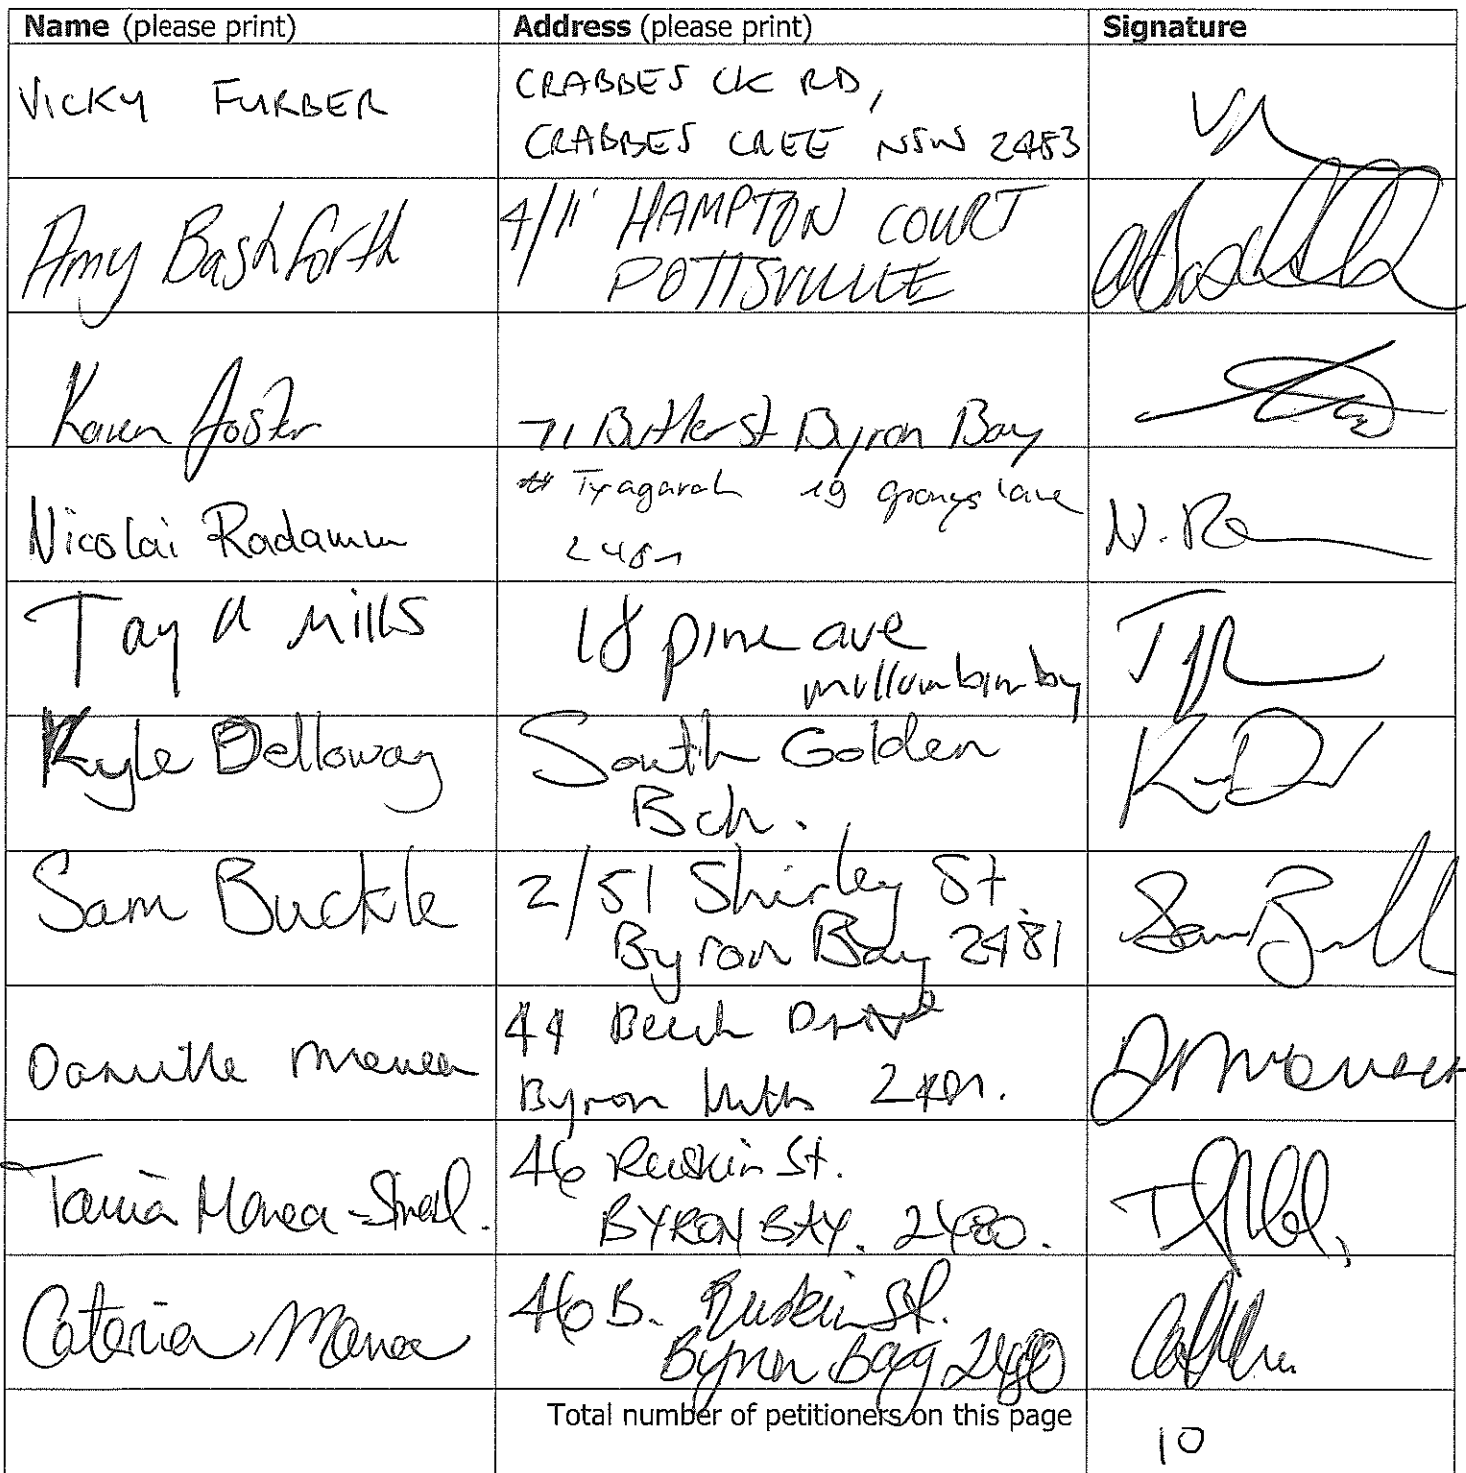 Name (please print) Address (please print) Signature
VICKY FURBER
CRABBES CK RD,
CRABBES CREE NSW 2483
Amy Bashforth
4/11 HAMPTON COURT
POTTSVILLE
Karen Foster 71 Butler st Byron Bay
Nicolai Radamm
Tyagarah 19 grays lane
2481
N. Ra
Tay A Mills
18 pine ave
mullumbimby
Kyle Delloway
South Golden
Bch.
Sam Buckle
2/51 Shirley St.
Byron Bay 2481
Sam B
Danielle Manea
44 Beech Drive
Byron 2481.
DManea
Tania Manea-Snad.
46 Ruskin St.
BYRON BAY. 2480.
Caterina Manea
46 B. Ruskin St.
Byron Bay 2480
Total number of petitioners on this page
10